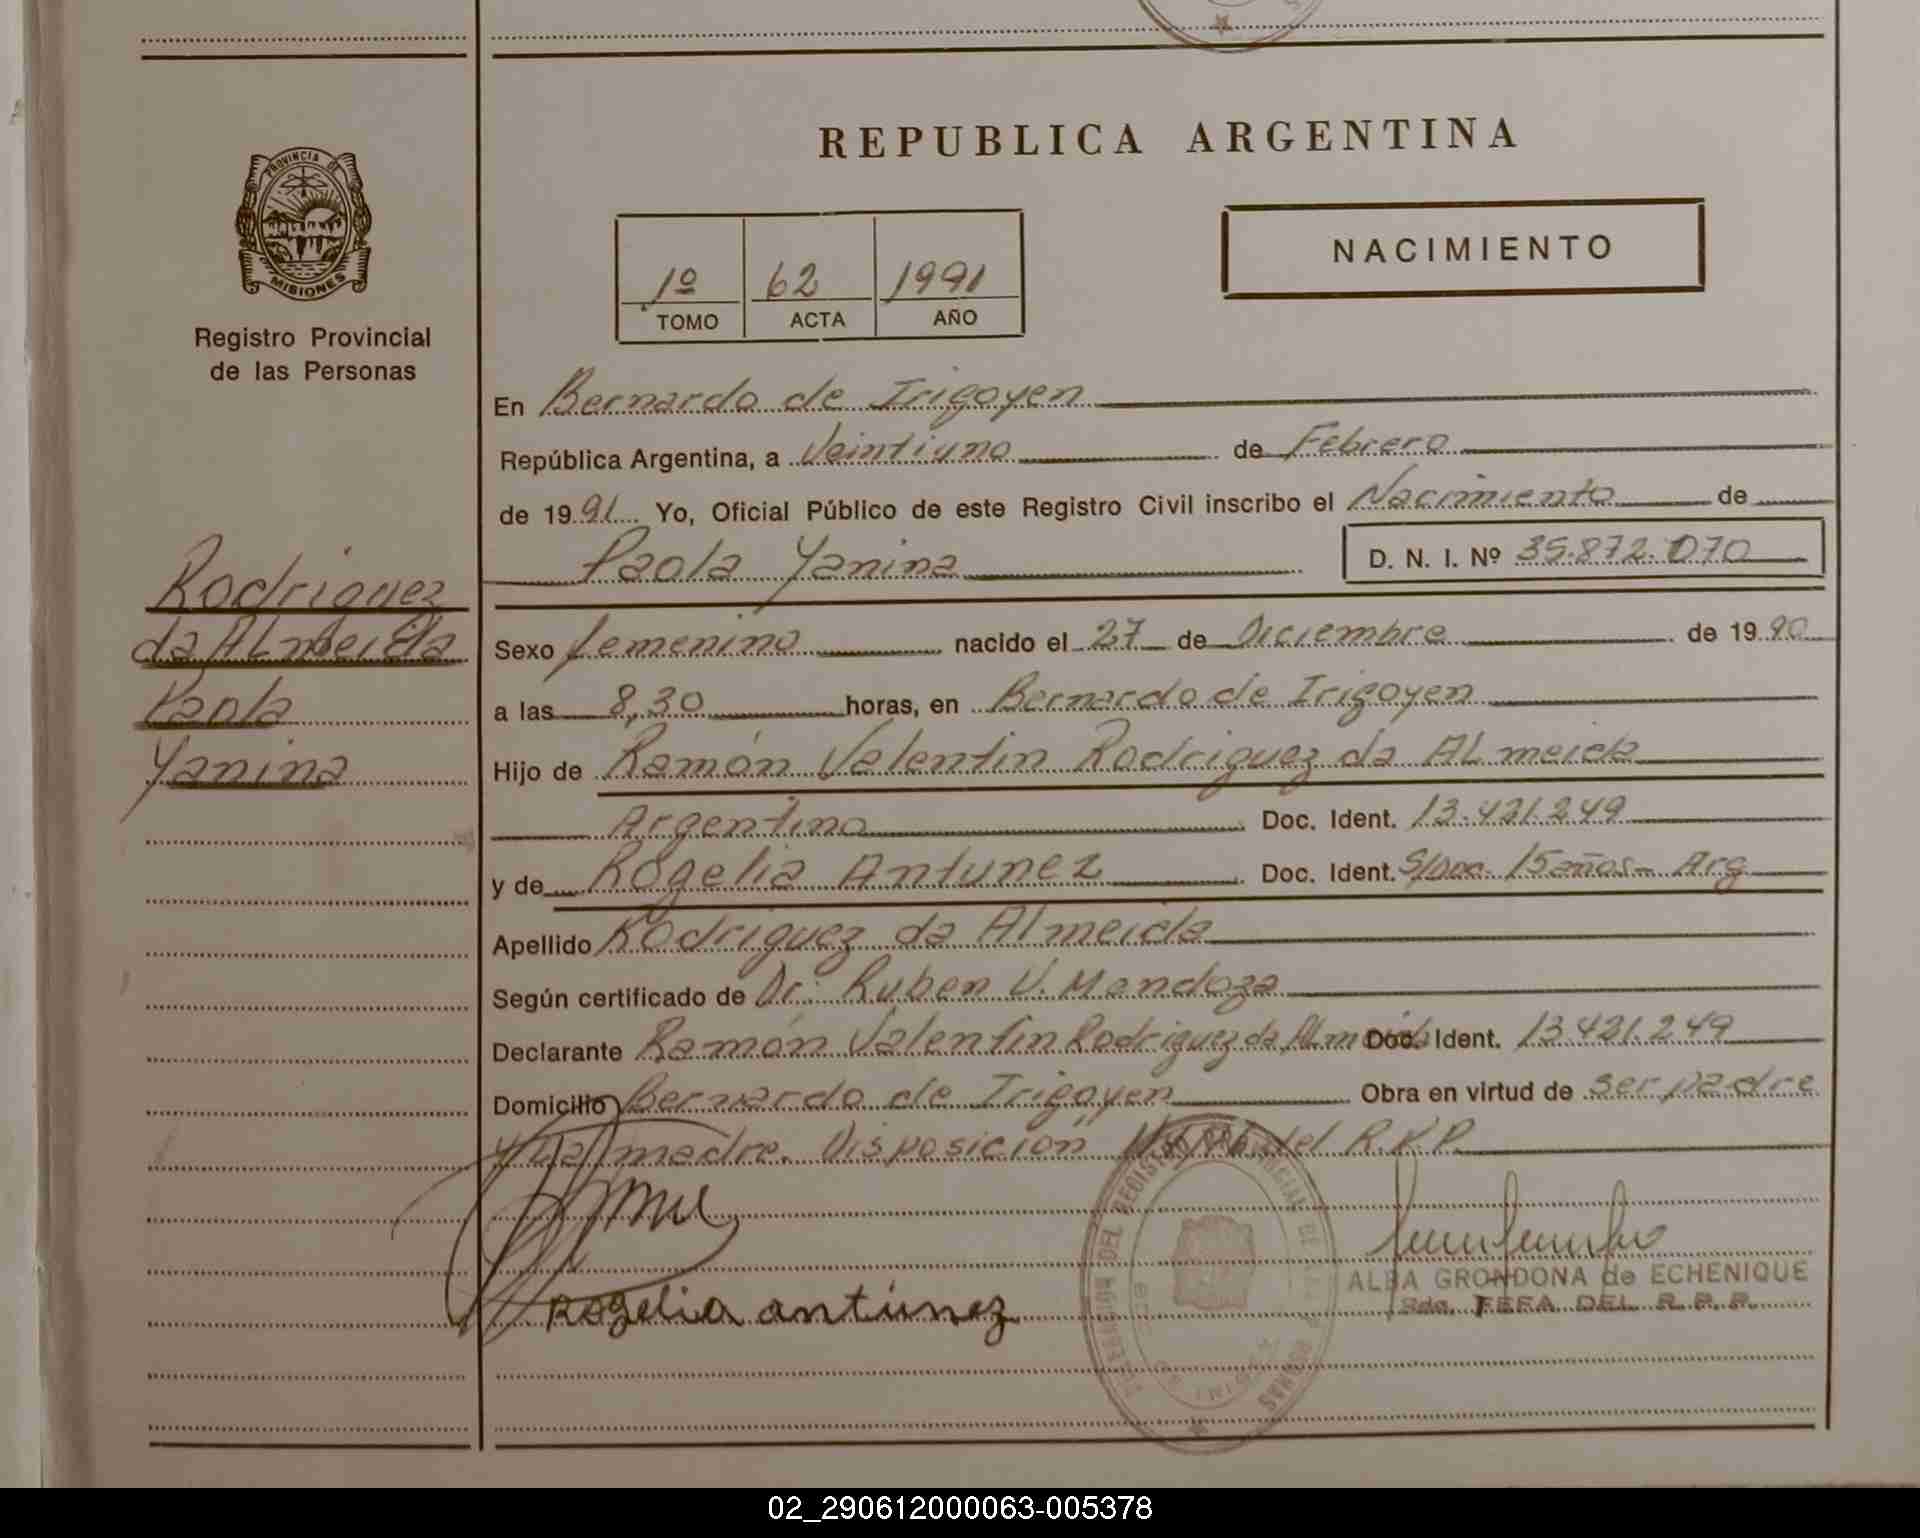 REPUBLICA ARGENTINA
PROVINCIA DE
MISIONES
Registro Provincial
de las Personas
1º 62 1991
TOMO ACTA AÑO
NACIMIENTO
En Bernardo de Irigoyen
República Argentina, a Veintiuno de Febrero
de 1991 Yo, Oficial Público de este Registro Civil inscribo el Nacimiento de
Paola Yanina D. N. I. Nº 35.872.070
Rodriguez
da Almeida
Paola
Yanina
Sexo femenino nacido el 27 de Diciembre de 1990
a las 8,30 horas, en Bernardo de Irigoyen
Hijo de Ramón Valentin Rodriguez da Almeida
Argentino Doc. Ident. 13.421.249
y de Rogelia Antunez Doc. Ident. S/Doc. 15 años - Arg
Apellido Rodriguez da Almeida
Según certificado de Dr: Ruben V. Mendoza
Declarante Ramón Valentin Rodriguez da Almeida Doc. Ident. 13.421.249
Domicilio Bernardo de Irigoyen Obra en virtud de ser padre
y la madre. Disposición del R.P.P.
Rogelia antúnez
ALBA GRONDONA de ECHENIQUE
2da. JEFA DEL R. P. P.
02_290612000063-005378